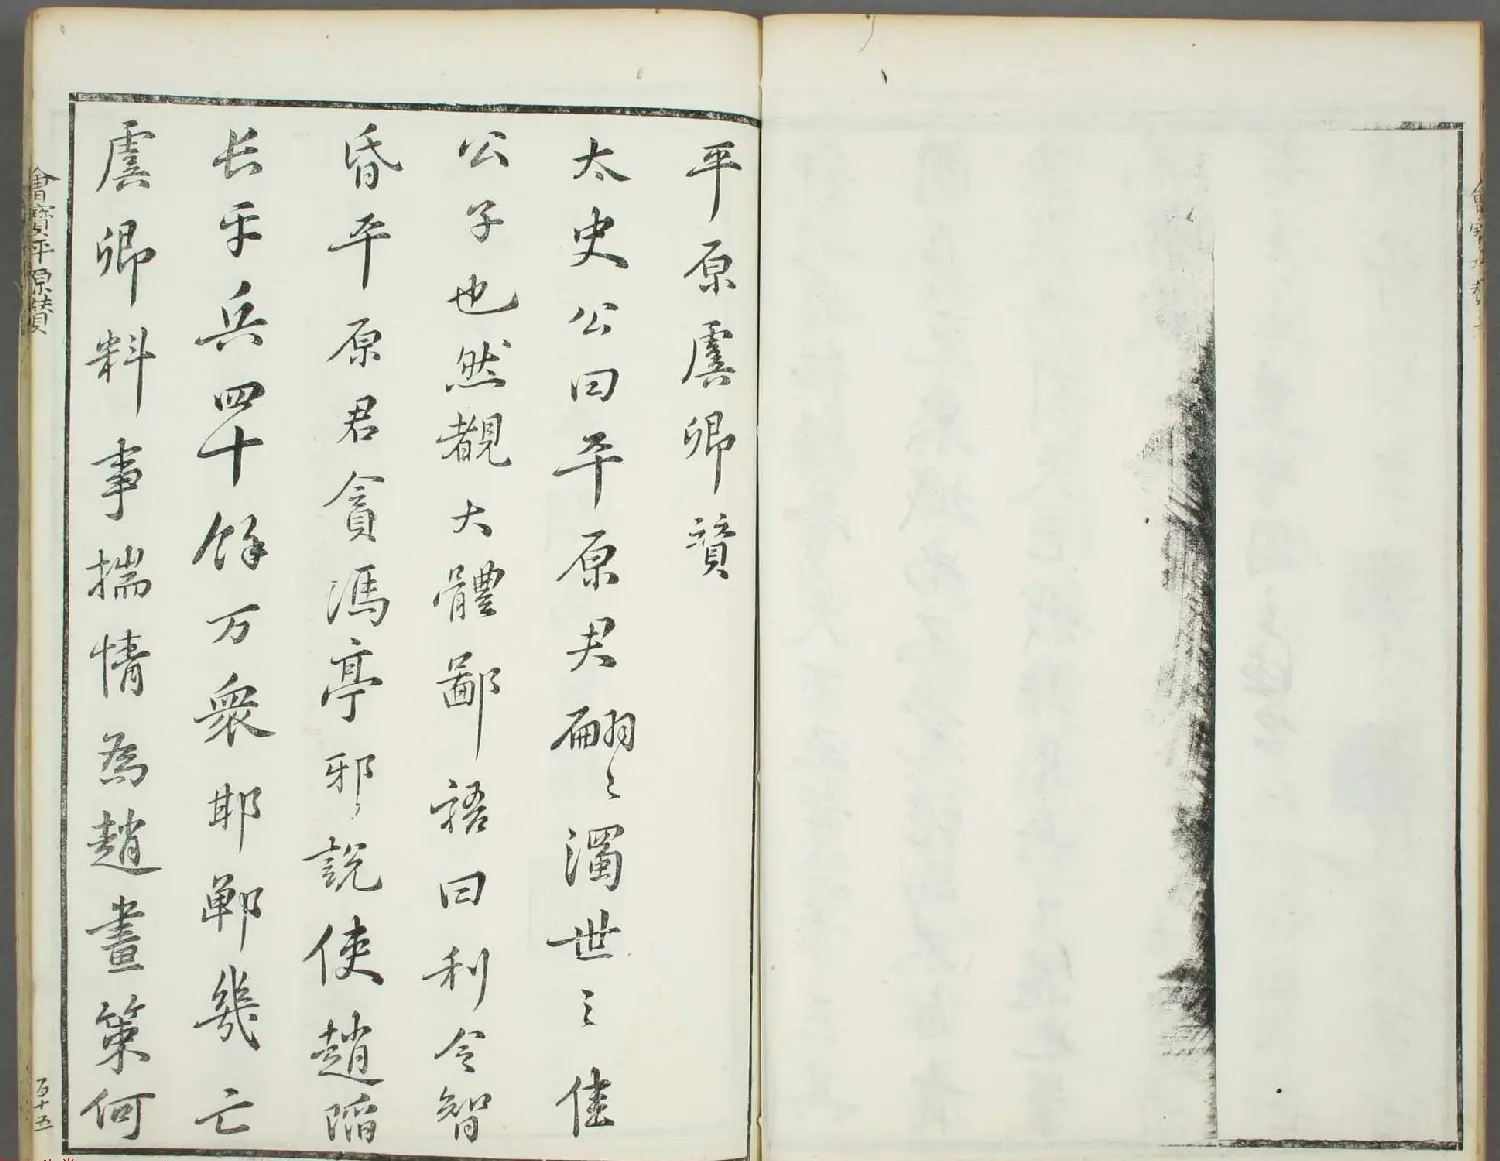 平原虞卿賛
太史公曰平原君翩〻濁世之佳
公子也然覩大體鄙語曰利令智
昏平原君貪馮亭邪說使趙陷
長平兵四十餘万衆邯鄲幾亡
虞卿料事揣情為趙畫策何